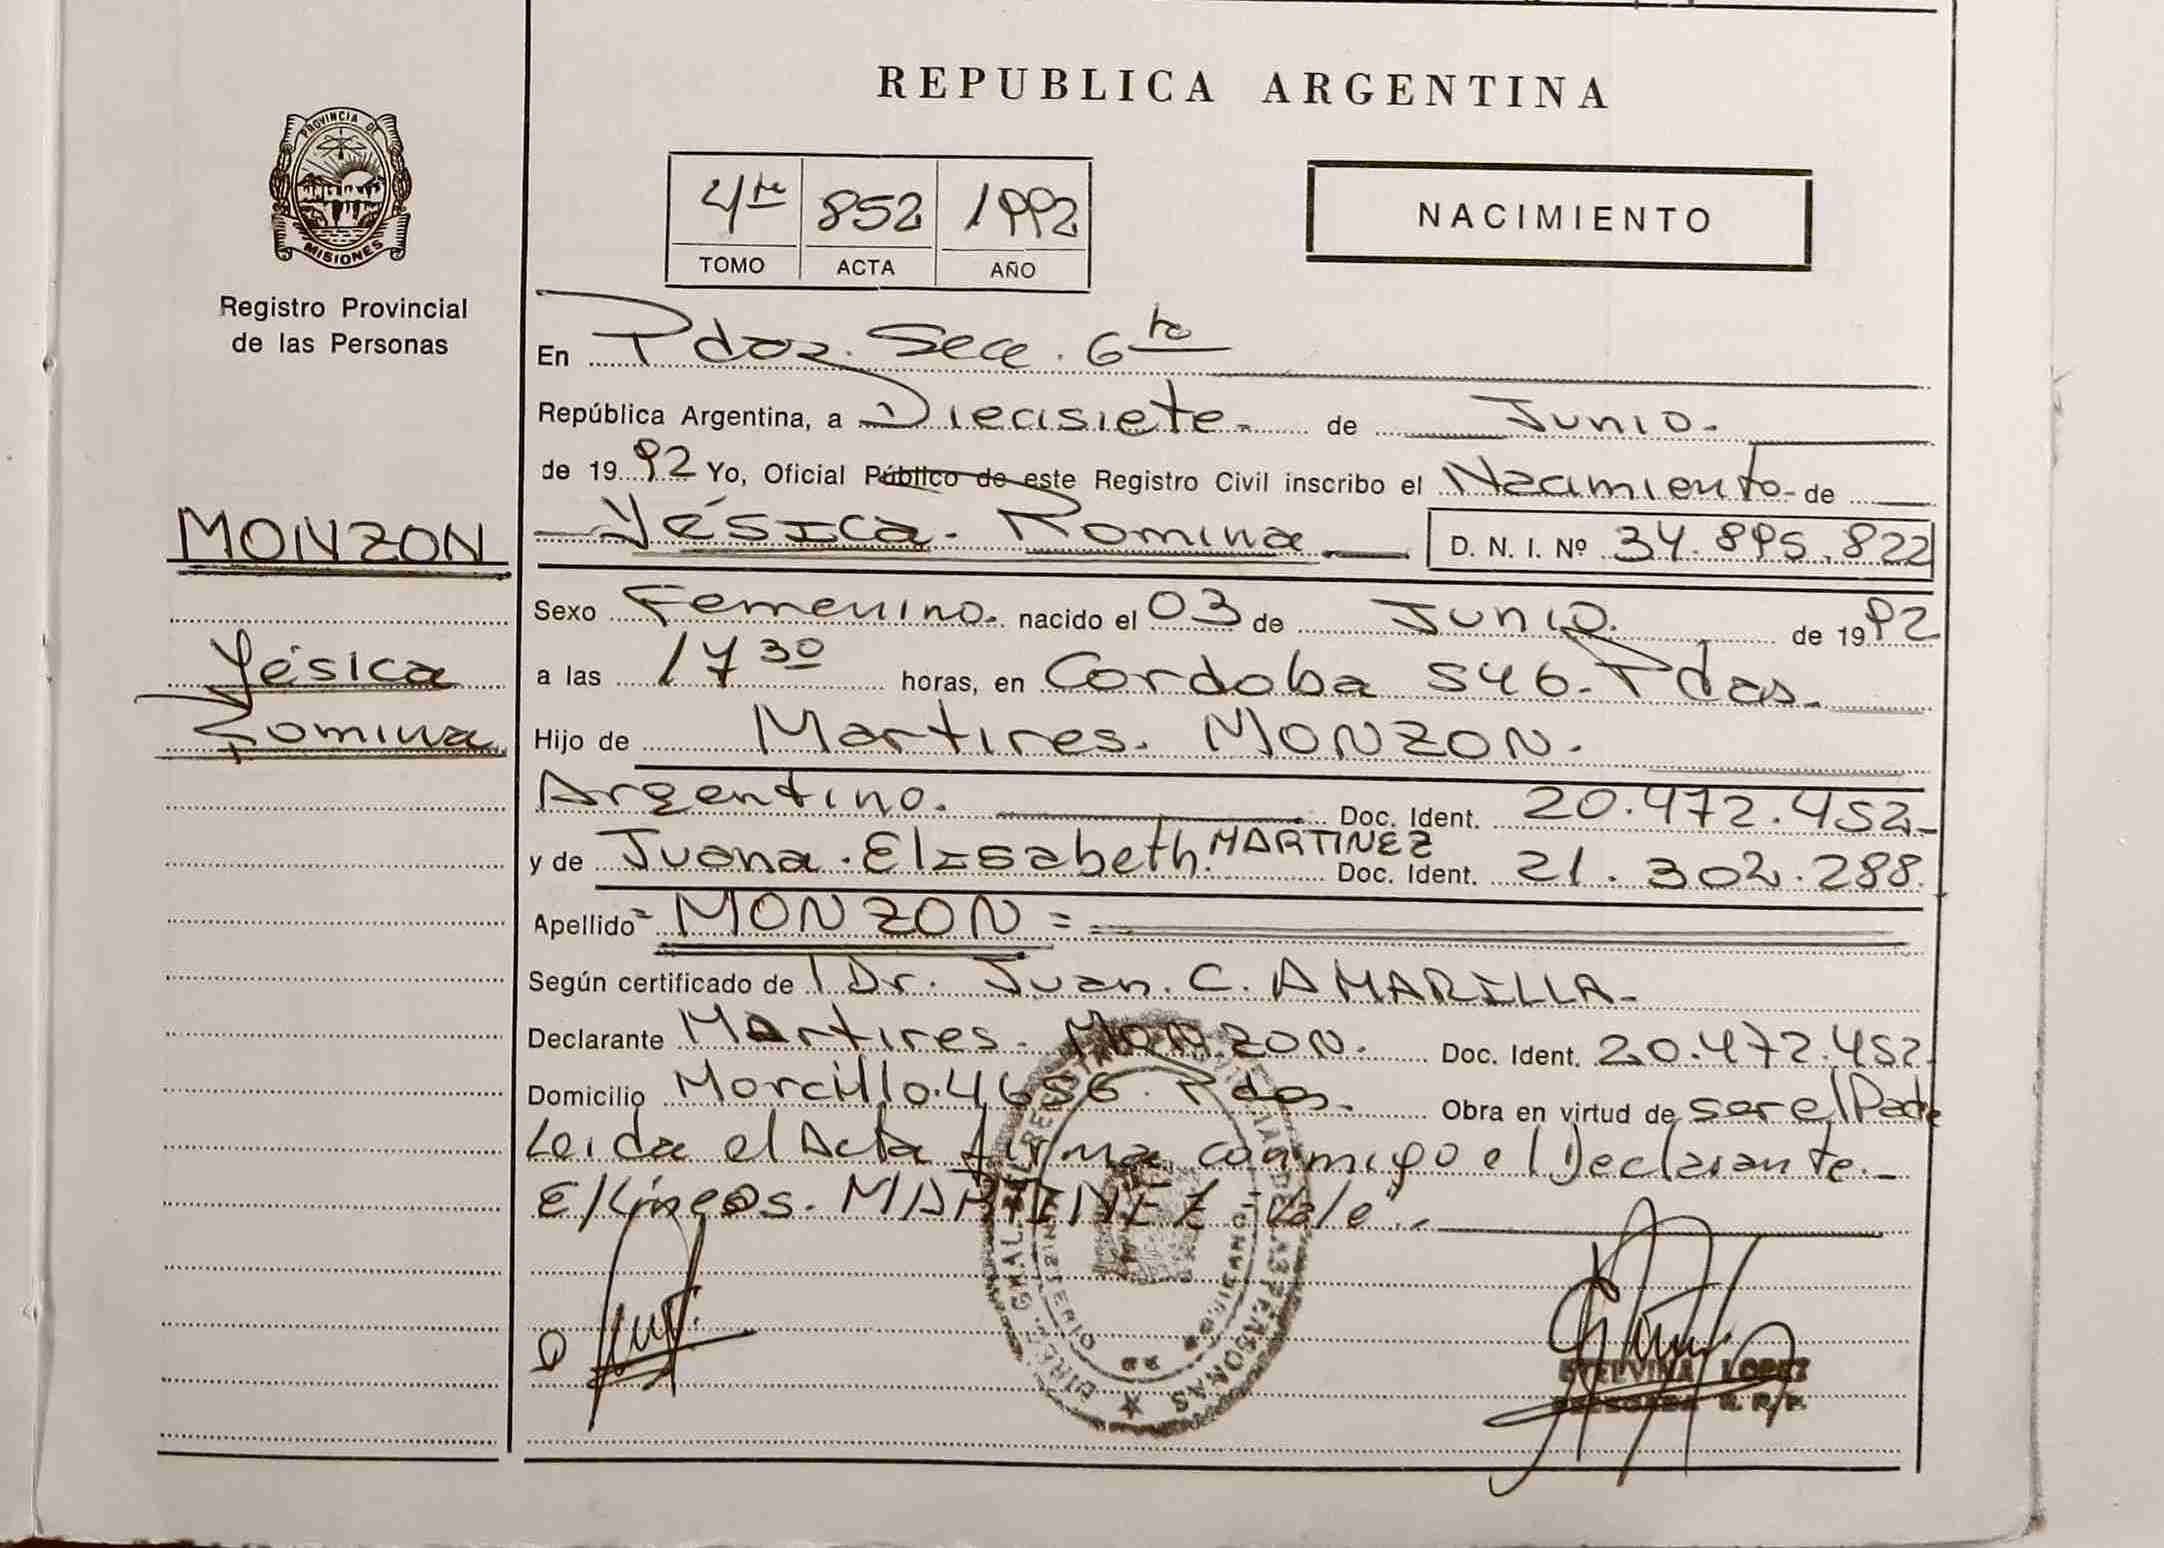 REPUBLICA ARGENTINA
PROVINCIA DE
MISIONES
Registro Provincial
de las Personas
4to 852 1992
TOMO ACTA AÑO
NACIMIENTO
En Pdas. Secc. 6ta
República Argentina, a Diecisiete. de Junio.
de 1992 Yo, Oficial Público de este Registro Civil inscribo el Nacimiento de
MONZON
Yésica Romina D. N. I. Nº 34.895.822
Sexo Femenino. nacido el 03 de Junio. de 1992
Yésica
a las 17 30 horas, en Cordoba 546. Pdas.
Romina
Hijo de Martires. MONZON.
Argentino. Doc. Ident. 20.472.452
y de Juana. Elisabeth. MARTINEZ Doc. Ident. 21.302.288.
Apellido = MONZON =
Según certificado de l Dr. Juan. C. AMARILLA.
Declarante Martires. MONZON. Doc. Ident. 20.472.452.
Domicilio Morcillo. 4686. Pdas. Obra en virtud de ser el Padre
Leida el Acta firma conmigo el Declarante.
E/Lineas. MARTINEZ Vale.
MINISTERIO
DE LAS PERSONAS
ETELVINA LOPEZ
R. P. P.